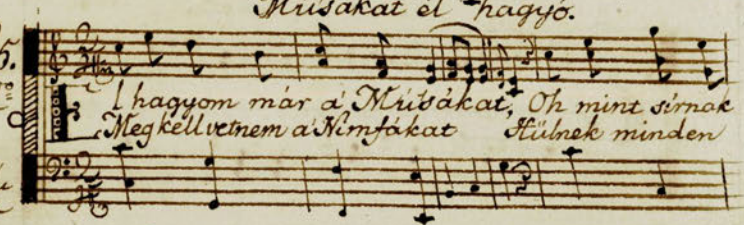 Músákat el hagyó.
5.
El hagyom már a' Músákat, Oh mint sírnak
Megkell vetnem a' Nimfákat Hülnek minden